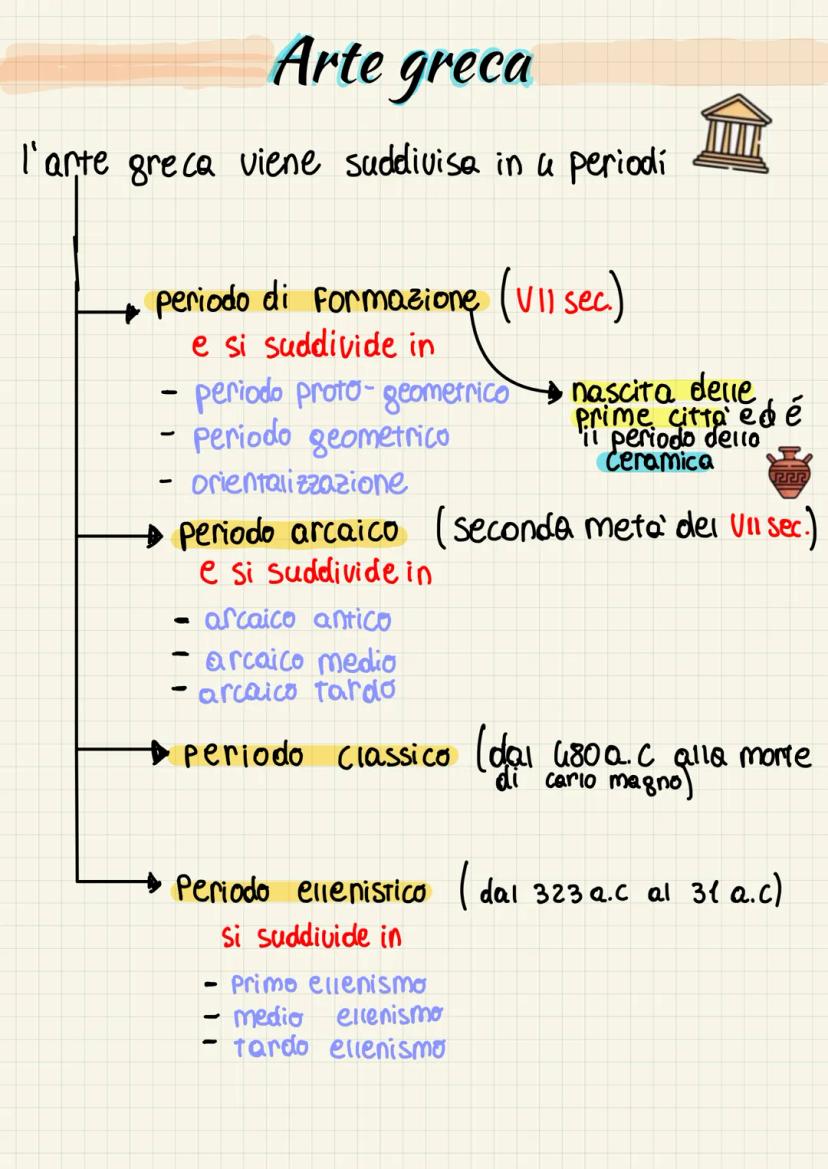 Arte greca
l'arte greca viene suddivisa in 4 periodi
periodo di formazione (VII sec.)
e si suddivide in
- periodo proto-geometrico
- periodo geometrico
- orientalizzazione
nascita delle
prime città ed é
il periodo della
ceramica
periodo arcaico (seconda metà del VII sec.)
e si suddivide in
- arcaico antico
- arcaico medio
- arcaico tardo
periodo classico (dal 480 a.C alla morte
di carlo magno)
Periodo ellenistico (dal 323 a.c al 31 a.c)
si suddivide in
- primo ellenismo
- medio ellenismo
- tardo ellenismo